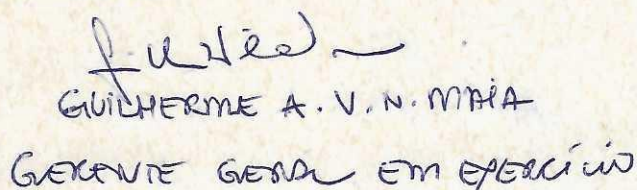 GUILHERME A. V. N. MAIA
GERENTE GERAL EM EXERCÍCIO